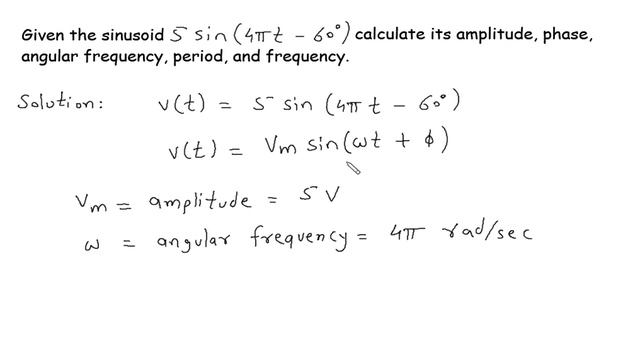 Given the sinusoid 5 sin (4πt - 60°) calculate its amplitude, phase,
angular frequency, period, and frequency.
Solution: v(t) = 5 sin (4π t - 60°)
v(t) = Vm sin (ωt + ϕ)
Vm = amplitude = 5 V
ω = angular frequency = 4π rad/sec